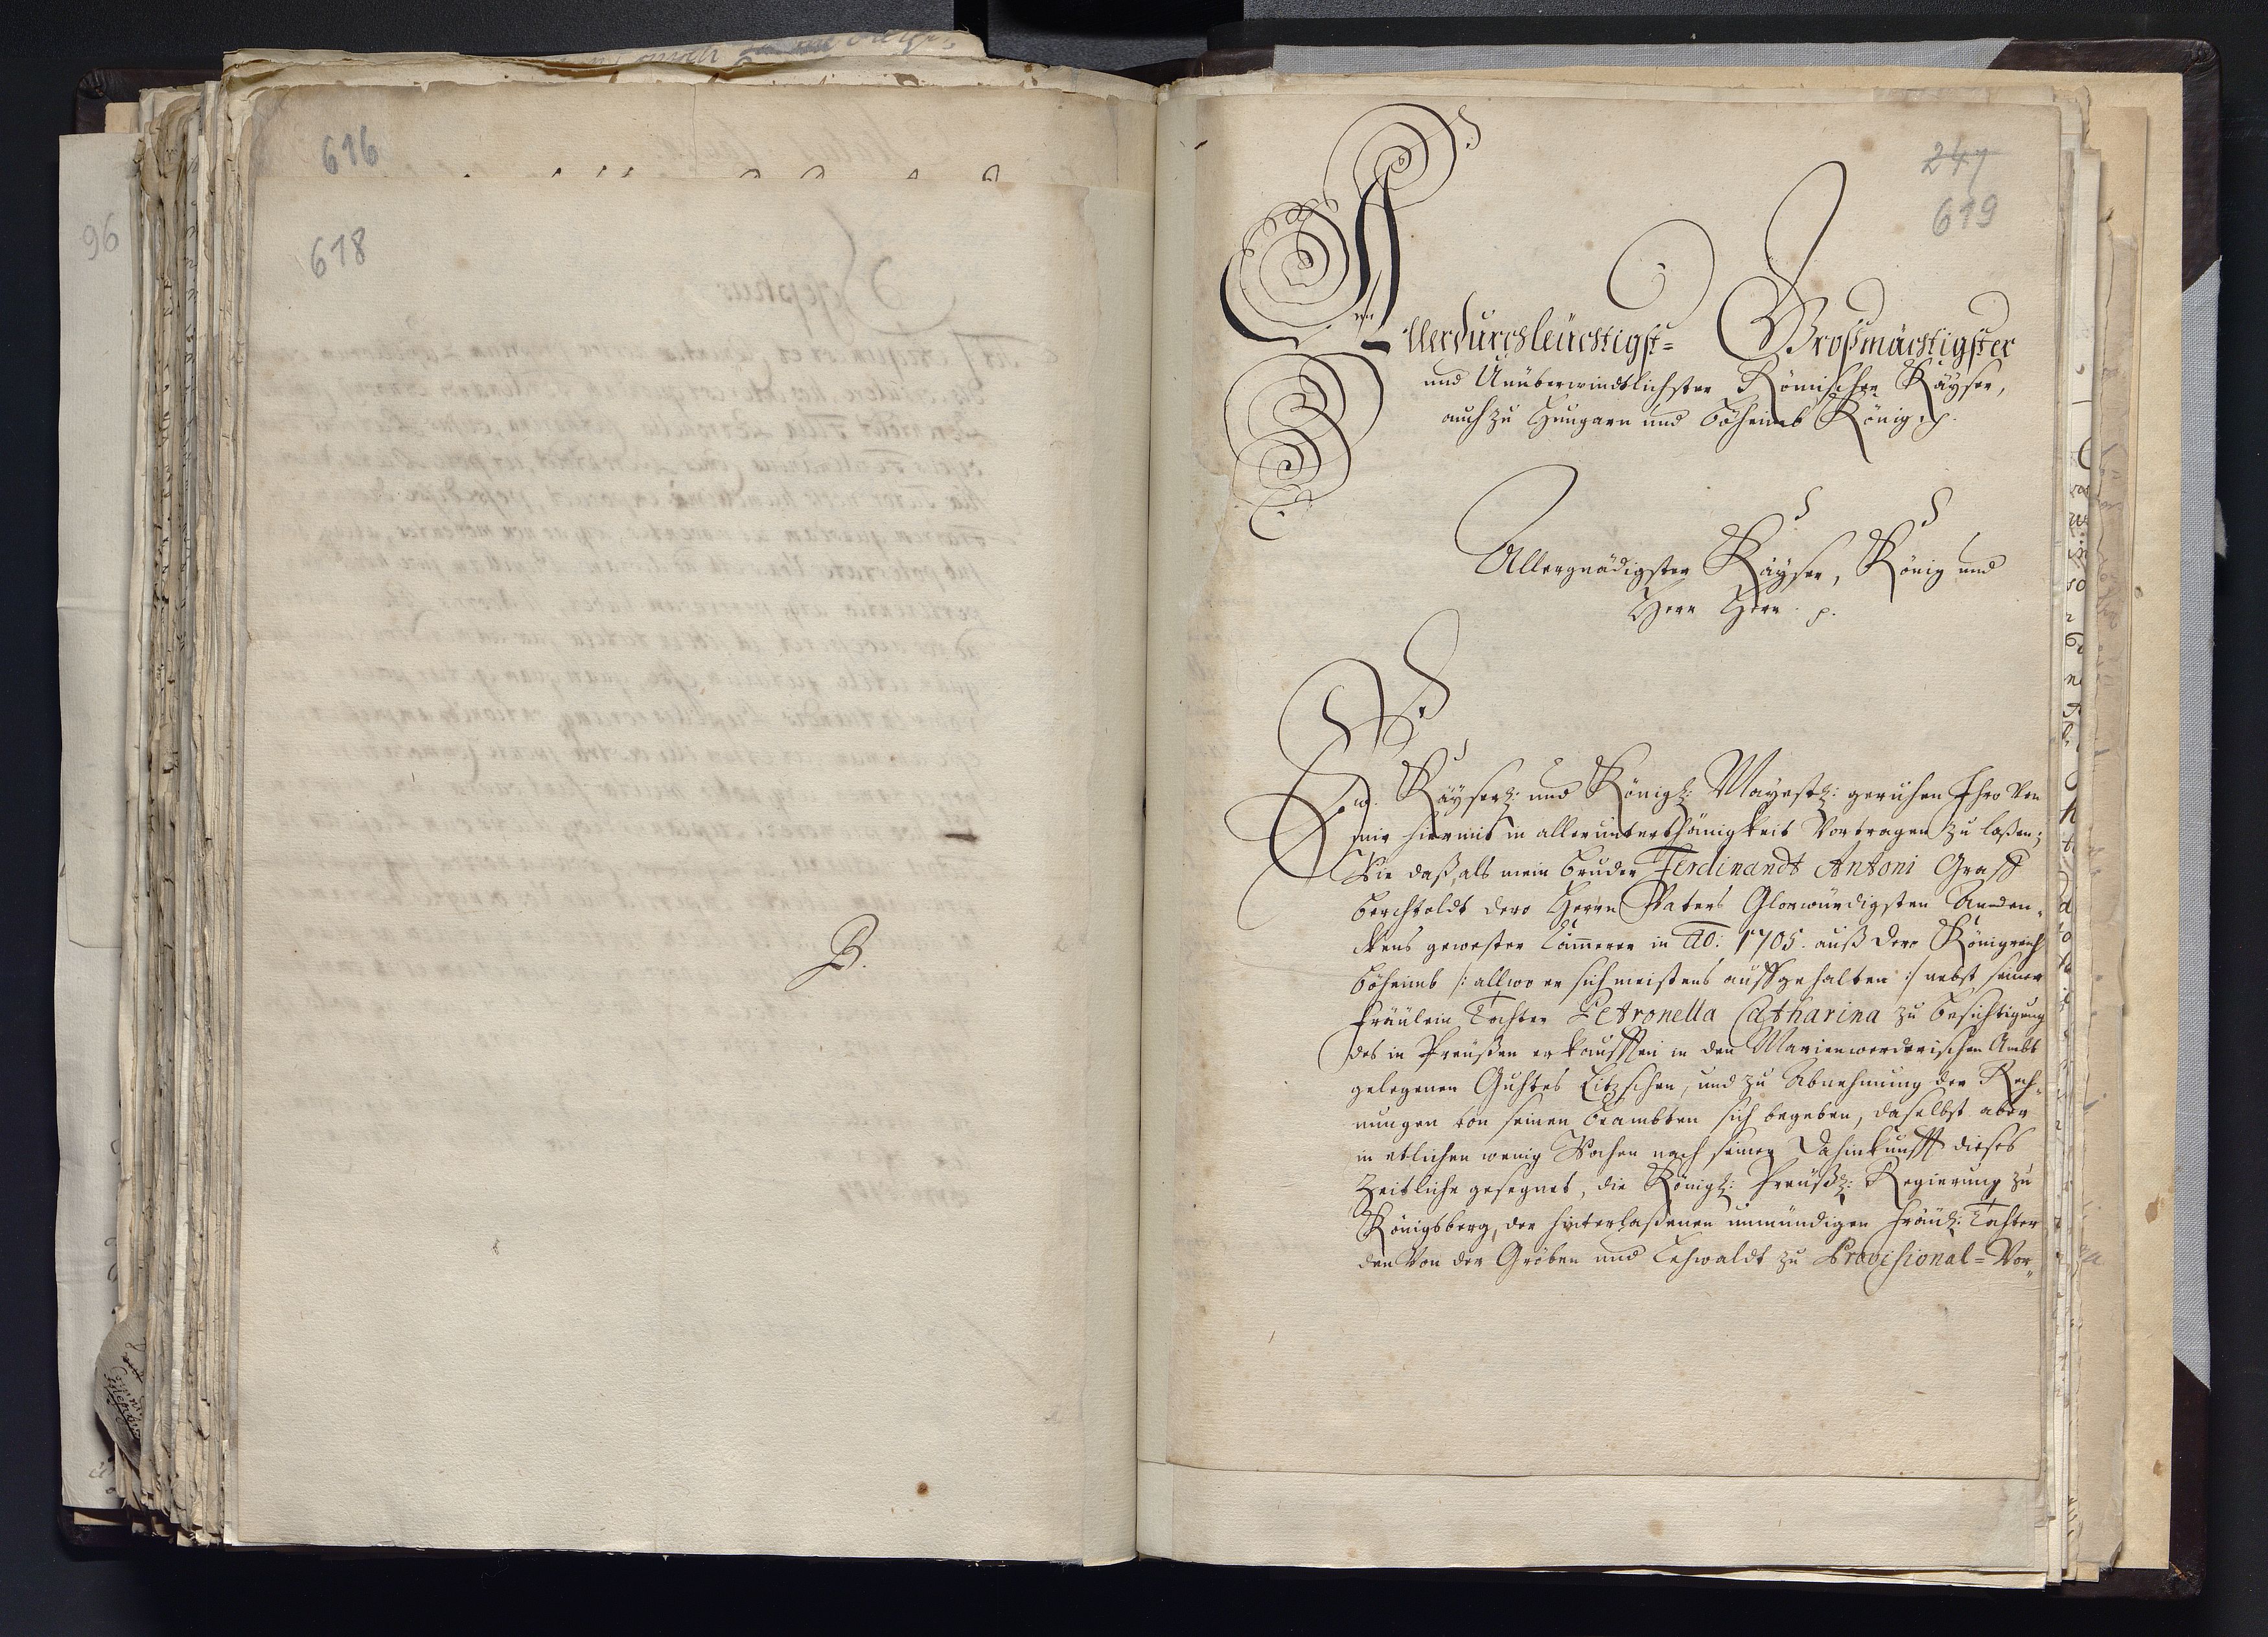 616
618
96
B.
247
619
Allerdurchleüchtigst= Großmächtigster
und Unüberwindtlichster Römischer Käyser,
auch zu Hungarn und Böheimb König p.
Allergnädigster Käyser, König und
Herr Herr. p.
Ew. Käyserl: und Königl: Mayestt: geruhen Ihro Von
mir hiermit in allerunterthänigkeit Vortragen zu laßen;
Wie daß, als mein Bruder Ferdinandt Antoni Graff
Berchtoldt dero Herrn Vaters Glorwürdigsten Anden-
ckens gewester Cämmerer in Ao: 1705. auß Dero Königreich
Böheimb /: allwo er sich meistens auffgehalten :/ nebst seiner
fräulein Tochter Petronella Catharina zu besichtigung
des in Preüßen erkaufften in den Marienwerderischen Ambt
gelegenen Guhtes Litzschen, und zu Abnehmung der Rech-
nungen von seinen Beambten sich begeben, daselbst aber
in etlichen wenig Wochen nach seiner Dahinkunfft dieses
Zeitliche gesegnet, die Königl: Preüßl: Regierung zu
Königsberg, der hinterlaßenen unmündigen fräul: Tochter
den Von der Gröben und Lehwaldt zu Provisional=Vor-